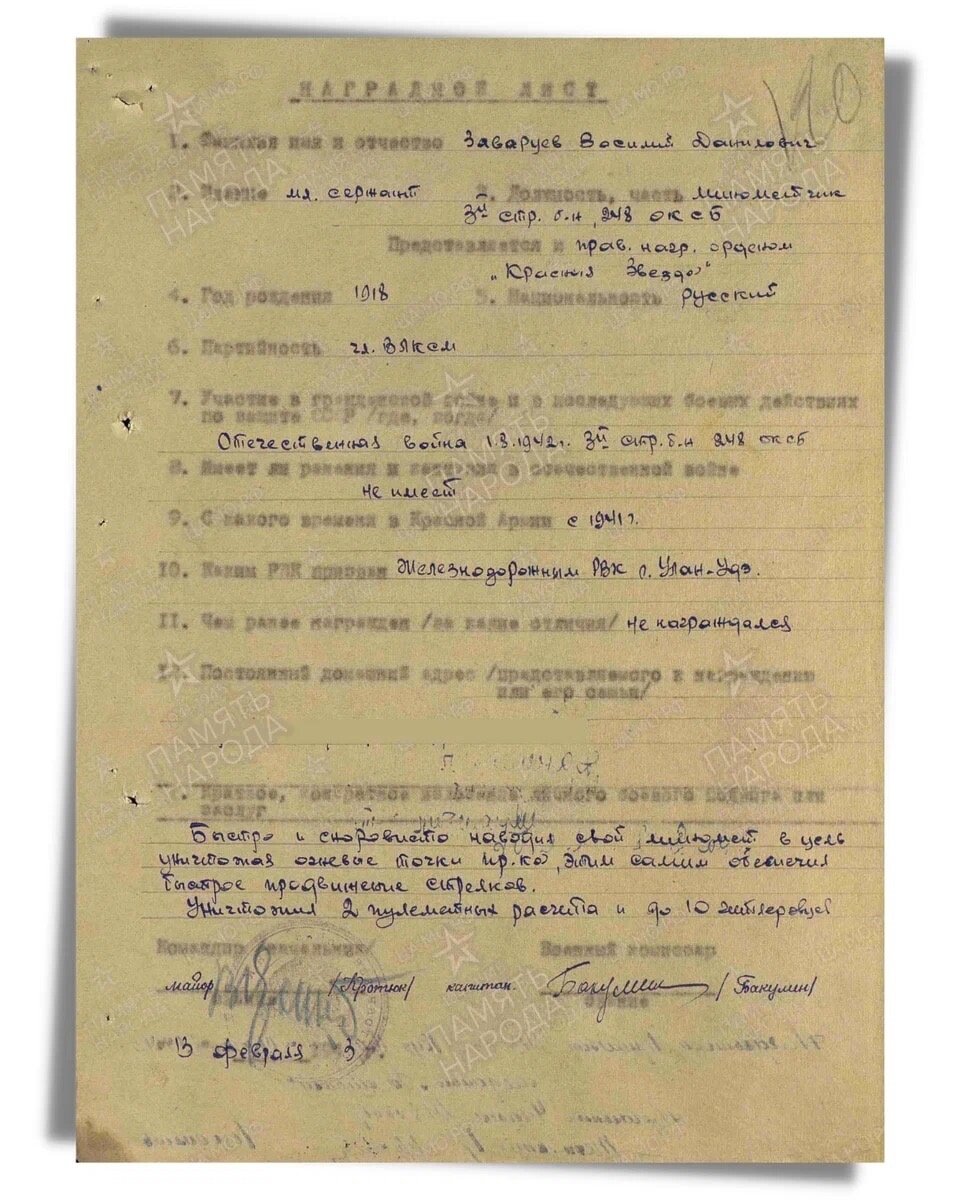 НАГРАДНОЙ ЛИСТ
1. Фамилия имя и отчество Заваруев Василий Данилович
2. Звание мл. сержант 3. Должность, часть минометчик
3й стр. б-н, 248 оксб
Представляется к прав. нагр. орденом
„Красная Звезда"
4. Год рождения 1918 5. Национальность русский
6. Партийность чл. ВЛКСМ
7. Участие в гражданской войне и в последующих боевых действиях
по защите СССР /где, когда/
Отечественная война 1.3.1942г. 3й стр. б-н 248 оксб
8. Имеет ли ранения и контузии в отечественной войне
не имеет
9. С какого времени в Красной Армии с 1941г.
10. Каким РВК призван Железнодорожным РВК г. Улан-Удэ.
11. Чем ранее награжден /за какие отличия/ не награждался
12. Постоянный домашний адрес /представляемого к награждению
или его семьи/
Краткое, конкретное изложение личного боевого подвига или
заслуг
Быстро и сноровисто наводил свой миномет в цель
уничтожая огневые точки пр-ка, этим самим обеспечил
быстрое продвижение стрелков.
Уничтожил 2 пулеметных расчета и до 10 гитлеровцев
Командир /начальник/ Военный комиссар
майор /Кротюк/ капитан. Бакулин /Бакулин/
звание
13 февраля 3 г.
ПАМЯТЬ НАРОДА
ЦАМО.РФ